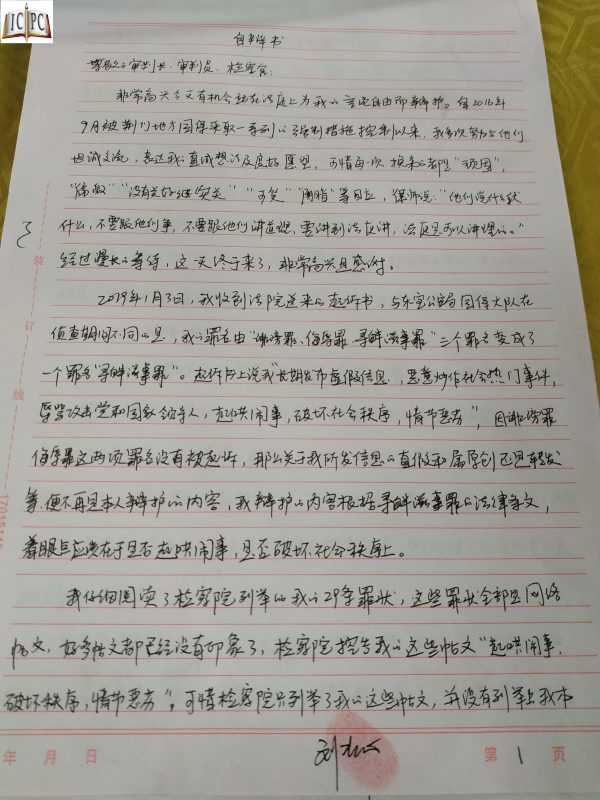 ICPC
自辩书
尊敬的审判长、审判员、检察官：
非常高兴今天有机会站在法庭上为我的言论自由而辩护。自2016年
9月被荆门地方国保采取一系列的强制措施控制以来，我多次努力与他们
坦诚交流，表达我的真诚想法及良好愿望，可惜每一次换来的都是“顽固”，
“没有关好继续关”“可笑”等回应，律师说：“他们说什么就
什么，不要跟他们争，不要跟他们讲道理，要讲到法庭讲，法庭是可以讲理的。”
经过漫长的等待，这一天终于来了，非常高兴且感谢。
2019年1月3日，我收到法院送来的起诉书，与东宝公安局国保大队在
侦查期间不同的是，我的罪名由“诽谤罪、侮辱罪、寻衅滋事罪”三个罪名变成了
一个罪名“寻衅滋事罪”。起诉书上说我“长期发布虚假信息，恶意炒作社会热门事件，
辱骂攻击党和国家领导人，起哄闹事，破坏社会秩序，情节恶劣”，因诽谤罪
侮辱罪这两项罪名没有被起诉，那么关于我所发信息的真假和属原创还是转发
等，便不再是本人辩护的内容，我辩护的内容根据寻衅滋事罪的法律条文，
着眼点应定在于是否起哄闹事，是否破坏社会秩序上。
我仔细阅读了检察院列举的我的29条罪状，这些罪状全部是网络
帖文，好多帖文都已经没有印象了，检察院控告我的这些帖文“起哄闹事，
破坏秩序，情节恶劣”，可惜检察院只列举了我的这些帖文，并没有列举出我本
装
订
线
年 月 日
第 1 页